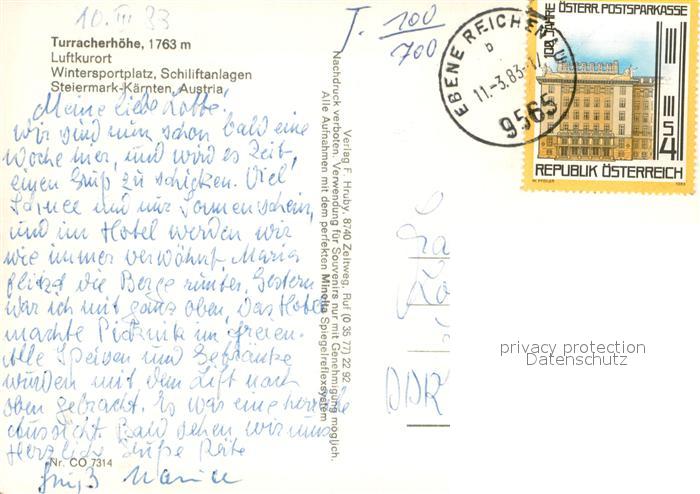 10. III 83
Turracherhöhe, 1763 m
Luftkurort
Wintersportplatz, Schiliftanlagen
Steiermark-Kärnten, Austria
Meine liebe Lotte!
wir sind nun schon bald eine
Woche hier, und wird es Zeit,
einen Gruß zu schicken. Viel
Schnee und nur Sonnenschein,
und im Hotel werden wir
wie immer verwöhnt. Maria
flitzt die Berge runter. Gestern
war ich mit ganz oben, das Hotel
machte Picknik im freien.
Alle Speisen und Getränke
wurden mit dem Lift nach
oben gebracht. Es war eine herrliche
Aussicht. Bald sehen wir uns
Herzliche Grüße Rita
Gruß
Nr. CO 7314
Verlag F. Hruby, 8740 Zeltweg, Ruf (0 35 77) 22 92
Nachdruck verboten, Verwendung für Souvenirs nur mit Genehmigung möglich.
Alle Aufnahmen mit dem perfekten Minolta Spiegelreflexsystem
T. 100
700
EBENE REICHENAU
b
11.-3.83-17
9565
100 JAHRE ÖSTERR. POSTSPARKASSE
S 4
REPUBLIK ÖSTERREICH
1983
DDR
privacy protection
Datenschutz